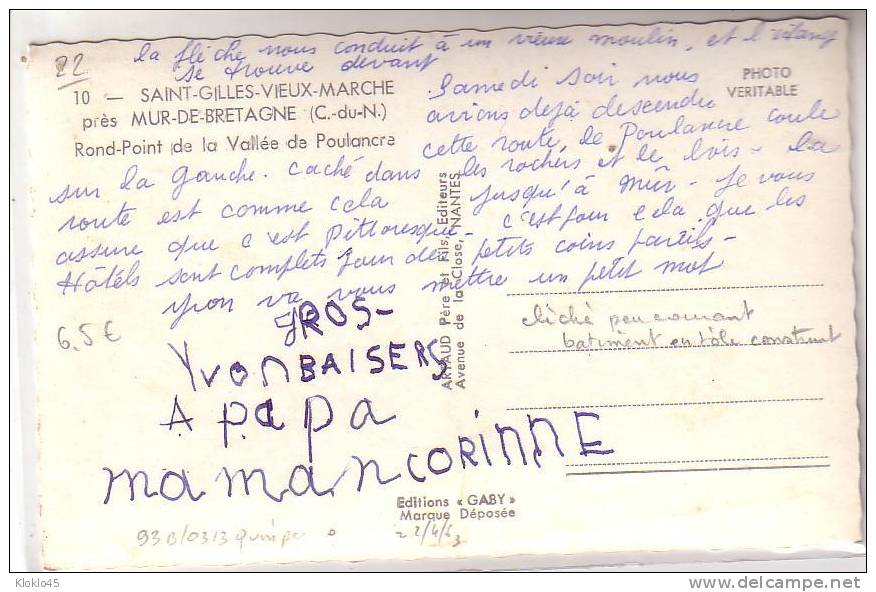 22
la flèche nous conduit à un vieux moulin, et l'étang
se trouve devant
10 — SAINT-GILLES-VIEUX-MARCHE
près MUR-DE-BRETAGNE (C.-du-N.)
Rond-Point de la Vallée de Poulancre
PHOTO
VERITABLE
Samedi soir nous
avions dejà descendu
cette route, le Poulancre coule
sur la gauche. caché dans les rochers et le bois - la
route est comme cela jusqu'à Mûr - Je vous
assure que c'est Pittoresque - c'est pour cela que les
Hôtels sont complets pour des petits coins pareils -
Yvon va vous mettre un petit mot
6,5€
GROS -
Yvon BAISERS
A papa
maman CORINNE
ARTAUD Père et Fils, Editeurs
Avenue de la Close, NANTES
cliché peu courant
batiment en tôle construit
Editions « GABY »
Marque Déposée
93B/0313 Quimper
22/4/63
Kloklo45
delcampe.net